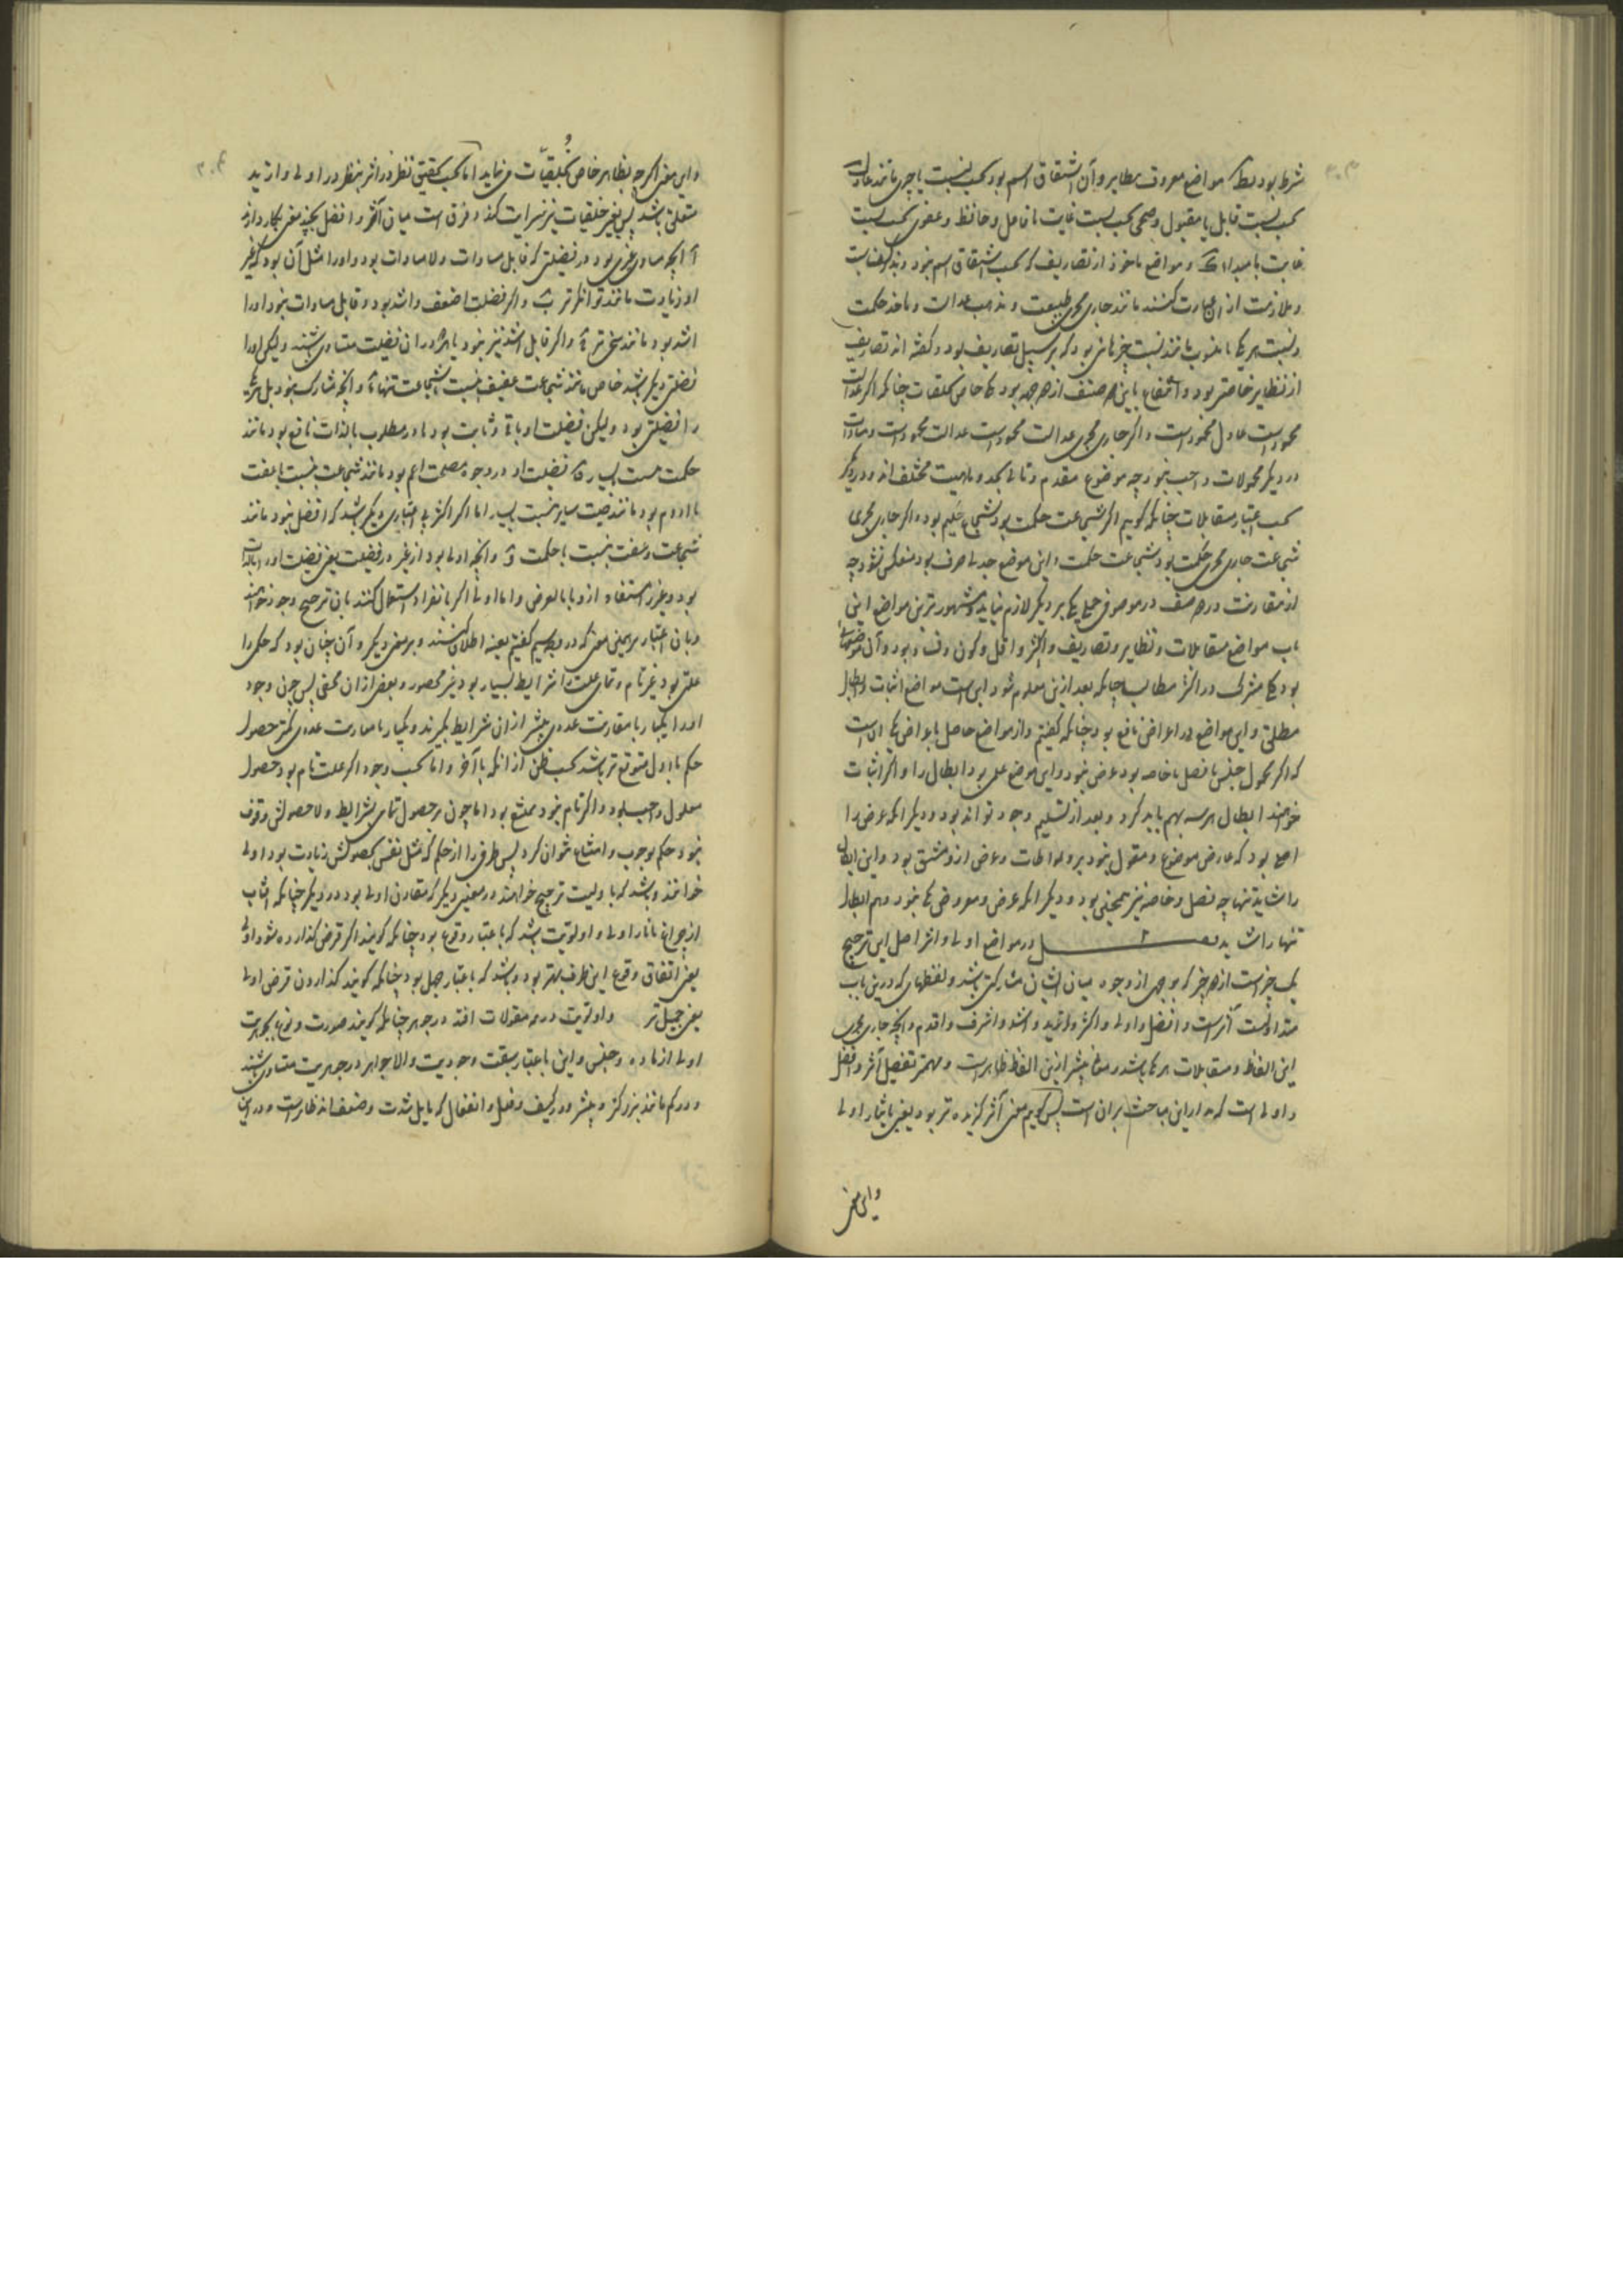 شرط بود بلکه مواضع معروف بنظایر و آن اشتقاق اسم بود بحسب نسبت با چیزی مانند عادل
بحسب نسبت قابل با مقبول و صحی بحسب نسبت غایت با فاعل و حافظ و عضوی بحسب نسبت
غایت با مبدأ و مواضع ماخوذ از تصاریف که بحسب اشتقاق اسم نبود
و ملازمت از آن عبارت کنند مانند جاری مجری طبیعت و مذهب عدالت و ماخذ حکمت
و نسبت هر یکی با منسوب مانند نسبت چیزها نبود که بر سبیل تصاریف بود و گفته‌اند تصاریف
از نظایر خاصتر بود و انتفاع باین هر صنف از هر جهه بود که خاص بخلقیات چنانکه اگر عدالت
محمود است عادل محمود است و اگر جاری مجری عدالت محمود است عدالت محمود است و مساوات
در دیگر محمولات واجب نبود چه موضوع مقدم و تالی بحد و ماهیت مختلف‌اند و در دیگر
بحسب اعتبار مقابلات چنانکه گوییم اگر شجاعت حکمت بود شجاع حکیم بود و اگر جاری مجری
شجاعت جاری مجری حکمت بود شجاعت حکمت و این موضع جدلی صرف بود منعکس نشود چه
از مقارنت دو صنف در موصوف حمل یکی بر دیگر لازم نیاید و مشهورترین مواضع این
باب مواضع مقابلات و نظایر و تصاریف و اکثر و اقل و کون و فساد بود و آن موضعها
بود که مشترک در اکثر مطالب چنانکه بعد ازین معلوم شود این است مواضع اثبات و ابطال
مطلق و این مواضع در اعراض نافع بود چنانکه گفتیم و از مواضع خاص باعراض یکی آن است
که اگر محمول جنس یا فصل یا خاصه بود عرض نبود و این موضع علمی بود ابطال را و اگر اثبات
خواهند ابطال هر سه بهم باید کرد و بعد از تسلیم وجود تواند بود و دیگر آنکه عرض را
اسمی بود که عارض موضوع و مقول نبود برو بمواطات و عرض ازو مشتق بود و این ابطال
را شاید تنها چه فصل و خاصه نیز همچنین بود و دیگر آنکه عرض و معروض یکی نبود و هم ابطال
تنها را شاید فصل ۲ در مواضع اولی و آثر اصل این ترجیح
یک چیز است از دو چیز که بوجهی از وجوه میان ایشان مشارکتی باشد و لفظهای که درین باب
متداولست آثر است و افضل و اولی و اکثر و ازید و اشد و اشرف و اقدم و آنچه جاری مجری
این الفاظ و مقابلات هر یکی باشد و معانی بیشتر ازین الفاظ ظاهر است و مهمتر تفصیل آثر و افضل
و اولی است که مدار این مباحث بر آن است پس گوییم معنی آثر گزیده‌تر بود یعنی بایثار اولی
و این معنی
و این معنی اگر چه بظاهر خاص بخلقیات می‌نماید اما بحسب تحقیق نظر در آثر بنظر در اولی و ازید
متعلق باشد پس بغیر خلقیات نیز سرایت کند و فرق است میان آثر و افضل بچند معنی یکی آنکه از
آنچه مساوی غیری بود در فضیلتی که قابل مساوات و لامساوات بود و او را مثل آن بود که غیر
او زیادت مانند توانگرتر و اگر فضیلت اضعف و اشد بود و قابل مساوات نبود او را
اشد بود مانند سخی‌تر و اگر قابل اشد نیز نبود یا هر دو در آن فضیلت متساوی باشند ولیکن او را
فضیلتی دیگر باشد خاص مانند شجاعت عفیف بنسبت با شجاعت تنها و آنچه مشارک نبود بل هر یکی
را فضیلتی بود ولیکن فضیلت او باقی و ثابت بود یا در مطلوب بالذات نافع بود مانند
حکمت بنسبت با یسار یا فضیلت او در وجوه مصلحت اعم بود مانند شجاعت بنسبت با عفت
یا ادوم بود مانند صیت بنسبت با یسار اما اگر اکثر بی اعتباری دیگر باشد که افضل نبود مانند
شجاعت و عفت بنسبت با حکمت و آنچه اولی بود از غیر در فضیلت یعنی فضیلت او را بالذات
بود و غیر استفاده ازو یا بالعرض و اما اولی اگر بانفراد استعمال کنند بآن ترجیح وجود خواهند
و بآن اعتبار بر همین معنی که در تقسیم گفتیم بعینه اطلاق کنند و بر معنی دیگر و آن چنان بود که حکمی را
علتی بود غیر تام و تمامی علت را شرایط بسیار بود غیر محصور و بعضی از آن مخفی پس چون وجود
او را یکبار با مقارنت عددی بیشتر از آن شرایط بگیرند و یکبار با مقارنت عددی کمتر حصول
حکم با اول متوقع‌تر باشد بحسب ظن از آنکه با آخر و اما بحسب وجود اگر علت تام بود حصول
معلول واجب بود و اگر تام نبود ممتنع بود اما چون بر حصول تمامی شرایط و لاحصولش وقوف
نبود حکم بوجوب و امتناع نتوان کرد پس طرفی را از حکم که میل نفس بحصولش زیادت بود اولی
خوانند و باشد که باولیت ترجیح خواهند در معنیی دیگر که مقارن اولی بود در دیگر چنانکه
از چراغ بانار اولی و اولویت باشد که باعتبار وقوع بود چنانکه گویند اگر قرض گذارده شود اولی
یعنی اتفاق وقوع این طرف بهتر بود و باشد که باعتبار جمیل بود چنانکه گویند گذاردن قرض اولی
یعنی جمیل‌تر و اولویت در همه مقولات افتد در جوهر چنانکه گویند صورت و نوع بجوهریت
اولی از ماده و جنس و این باعتبار سبقت وجود است و الا جواهر در جوهریت متساوی باشند
و در کم مانند بزرگتر و بیشتر و در کیف و فعل و انفعال که قابل شدت و ضعف‌اند ظاهر است و در این